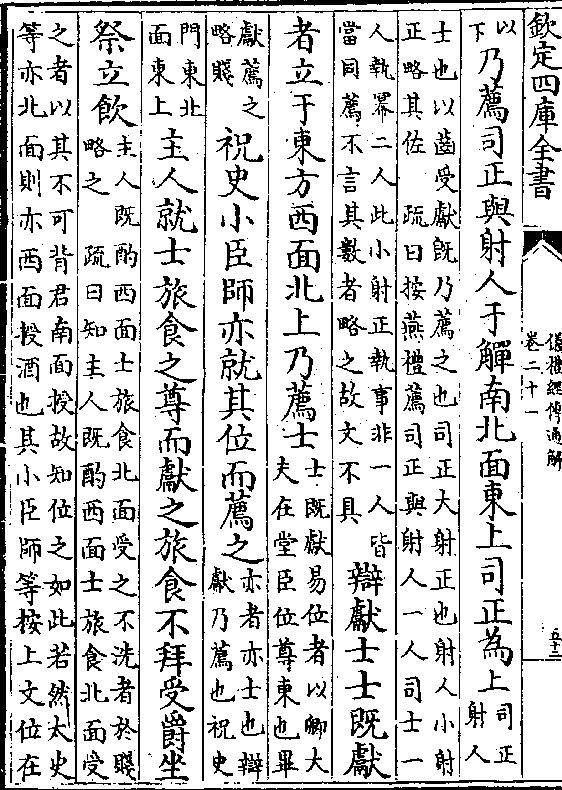 欽定四庫全書
儀禮經傳通解
卷二十一
五十三
以
下
乃薦司正與射人于觶南北面東上司正為上
司正
射人
士也以齒受獻既乃薦之也司正大射正也射人小射
正略其佐 疏曰按燕禮薦司正與射人一人司士一
人執冪二人此小射正執事非一人皆
當同薦不言其數者略之故文不具
辯獻士士既獻
者立于東方西面北上乃薦士
士既獻易位者以卿大
夫在堂臣位尊東也畢
獻薦之
略賤
祝史小臣師亦就其位而薦之
亦者亦士也辯
獻乃薦也祝史
門東北
面東上
主人就士旅食之尊而獻之旅食不拜受爵坐
祭立飲
主人既酌西面士旅食北面受之不洗者於賤
略之 疏曰知主人既酌西面士旅食北面受
之者以其不可背君南面授故知位之如此若然太史
等亦北面則亦西面授酒也其小臣師等按上文位在